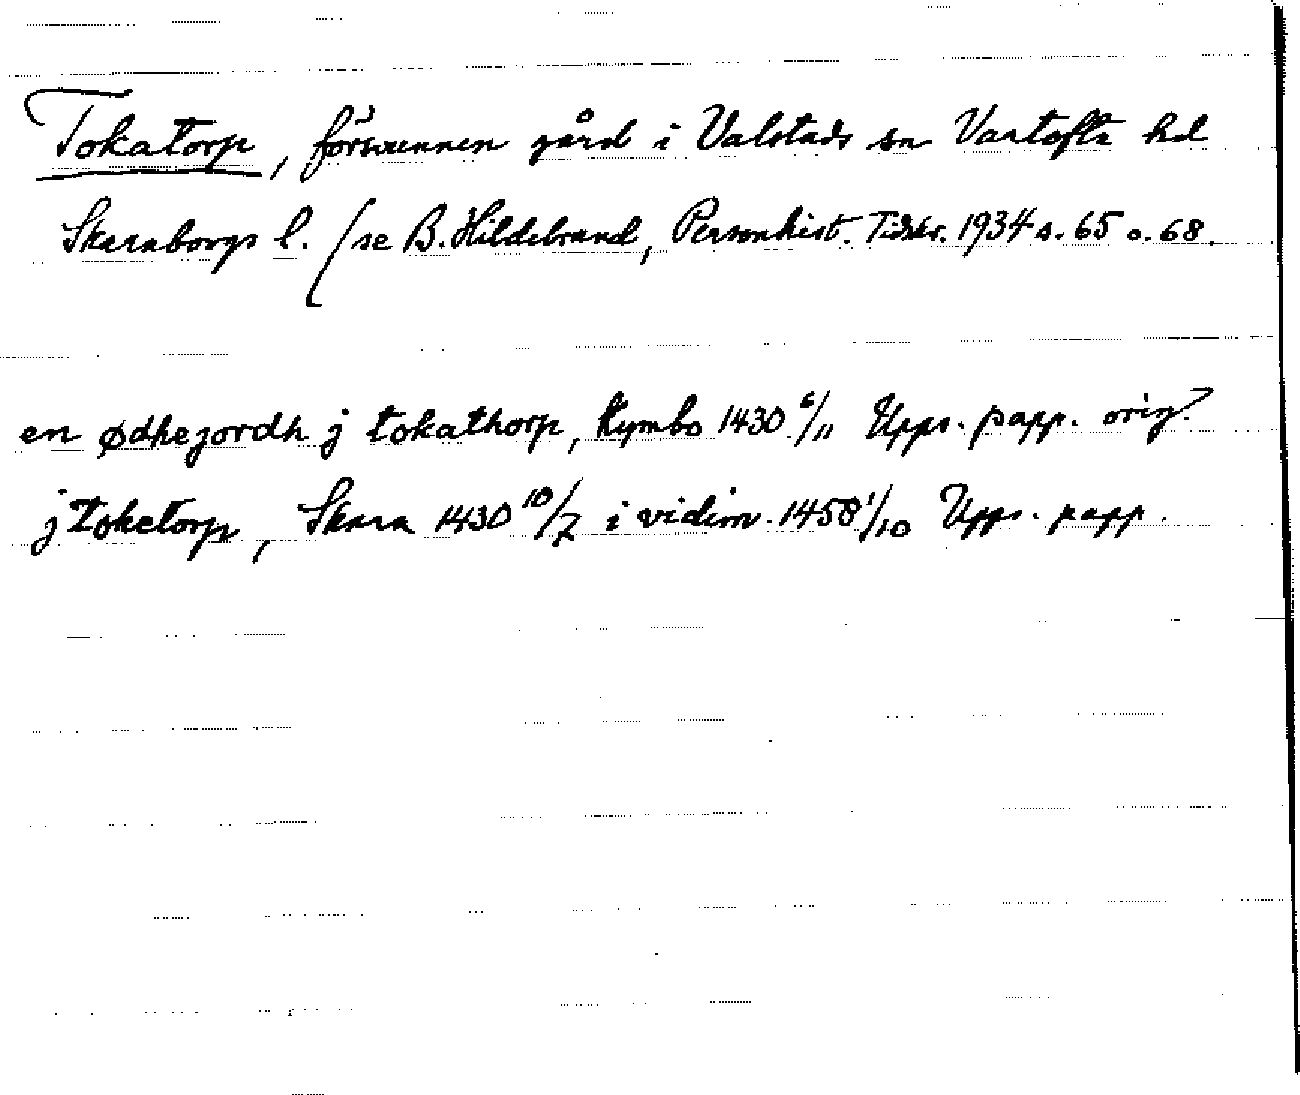 Tokatorp, försvunnen gård i Valstads sn Vartofta hd
Skaraborgs l. (se B. Hildebrand, Personhist. Tidskr. 1934 s. 65 o. 68.
en ødhejordh j tokathorp, Kymbo 1430 6/11 Upps. papp. orig.
j toketorp, Skara 1430 10/7 i vidim. 1458 1/10 Upps. papp.